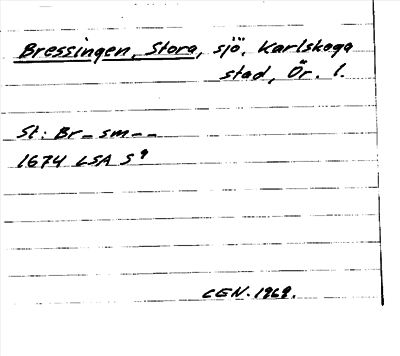 Bressingen, Stora, sjö. Karlskoga
stad, Ör. l.
St: Br_ sm_ _
1674 LSA S9
CEN. 1969.